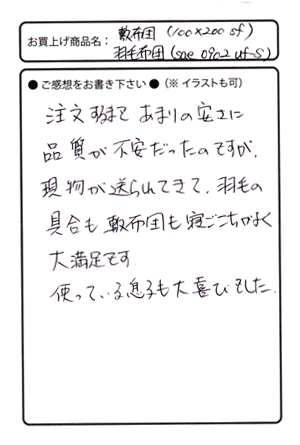 お買上げ商品名: 敷布団 (100×200 sf)
羽毛布団 (sae 0902 uf-S)
● ご感想をお書き下さい ● (※ イラストも可)
注文するまで あまりの安さに
品質が 不安だったのですが、
現物が送られてきて、羽毛の
具合も 敷布団も 寝ごこちがよく
大満足です
使っている息子も大喜びでした.